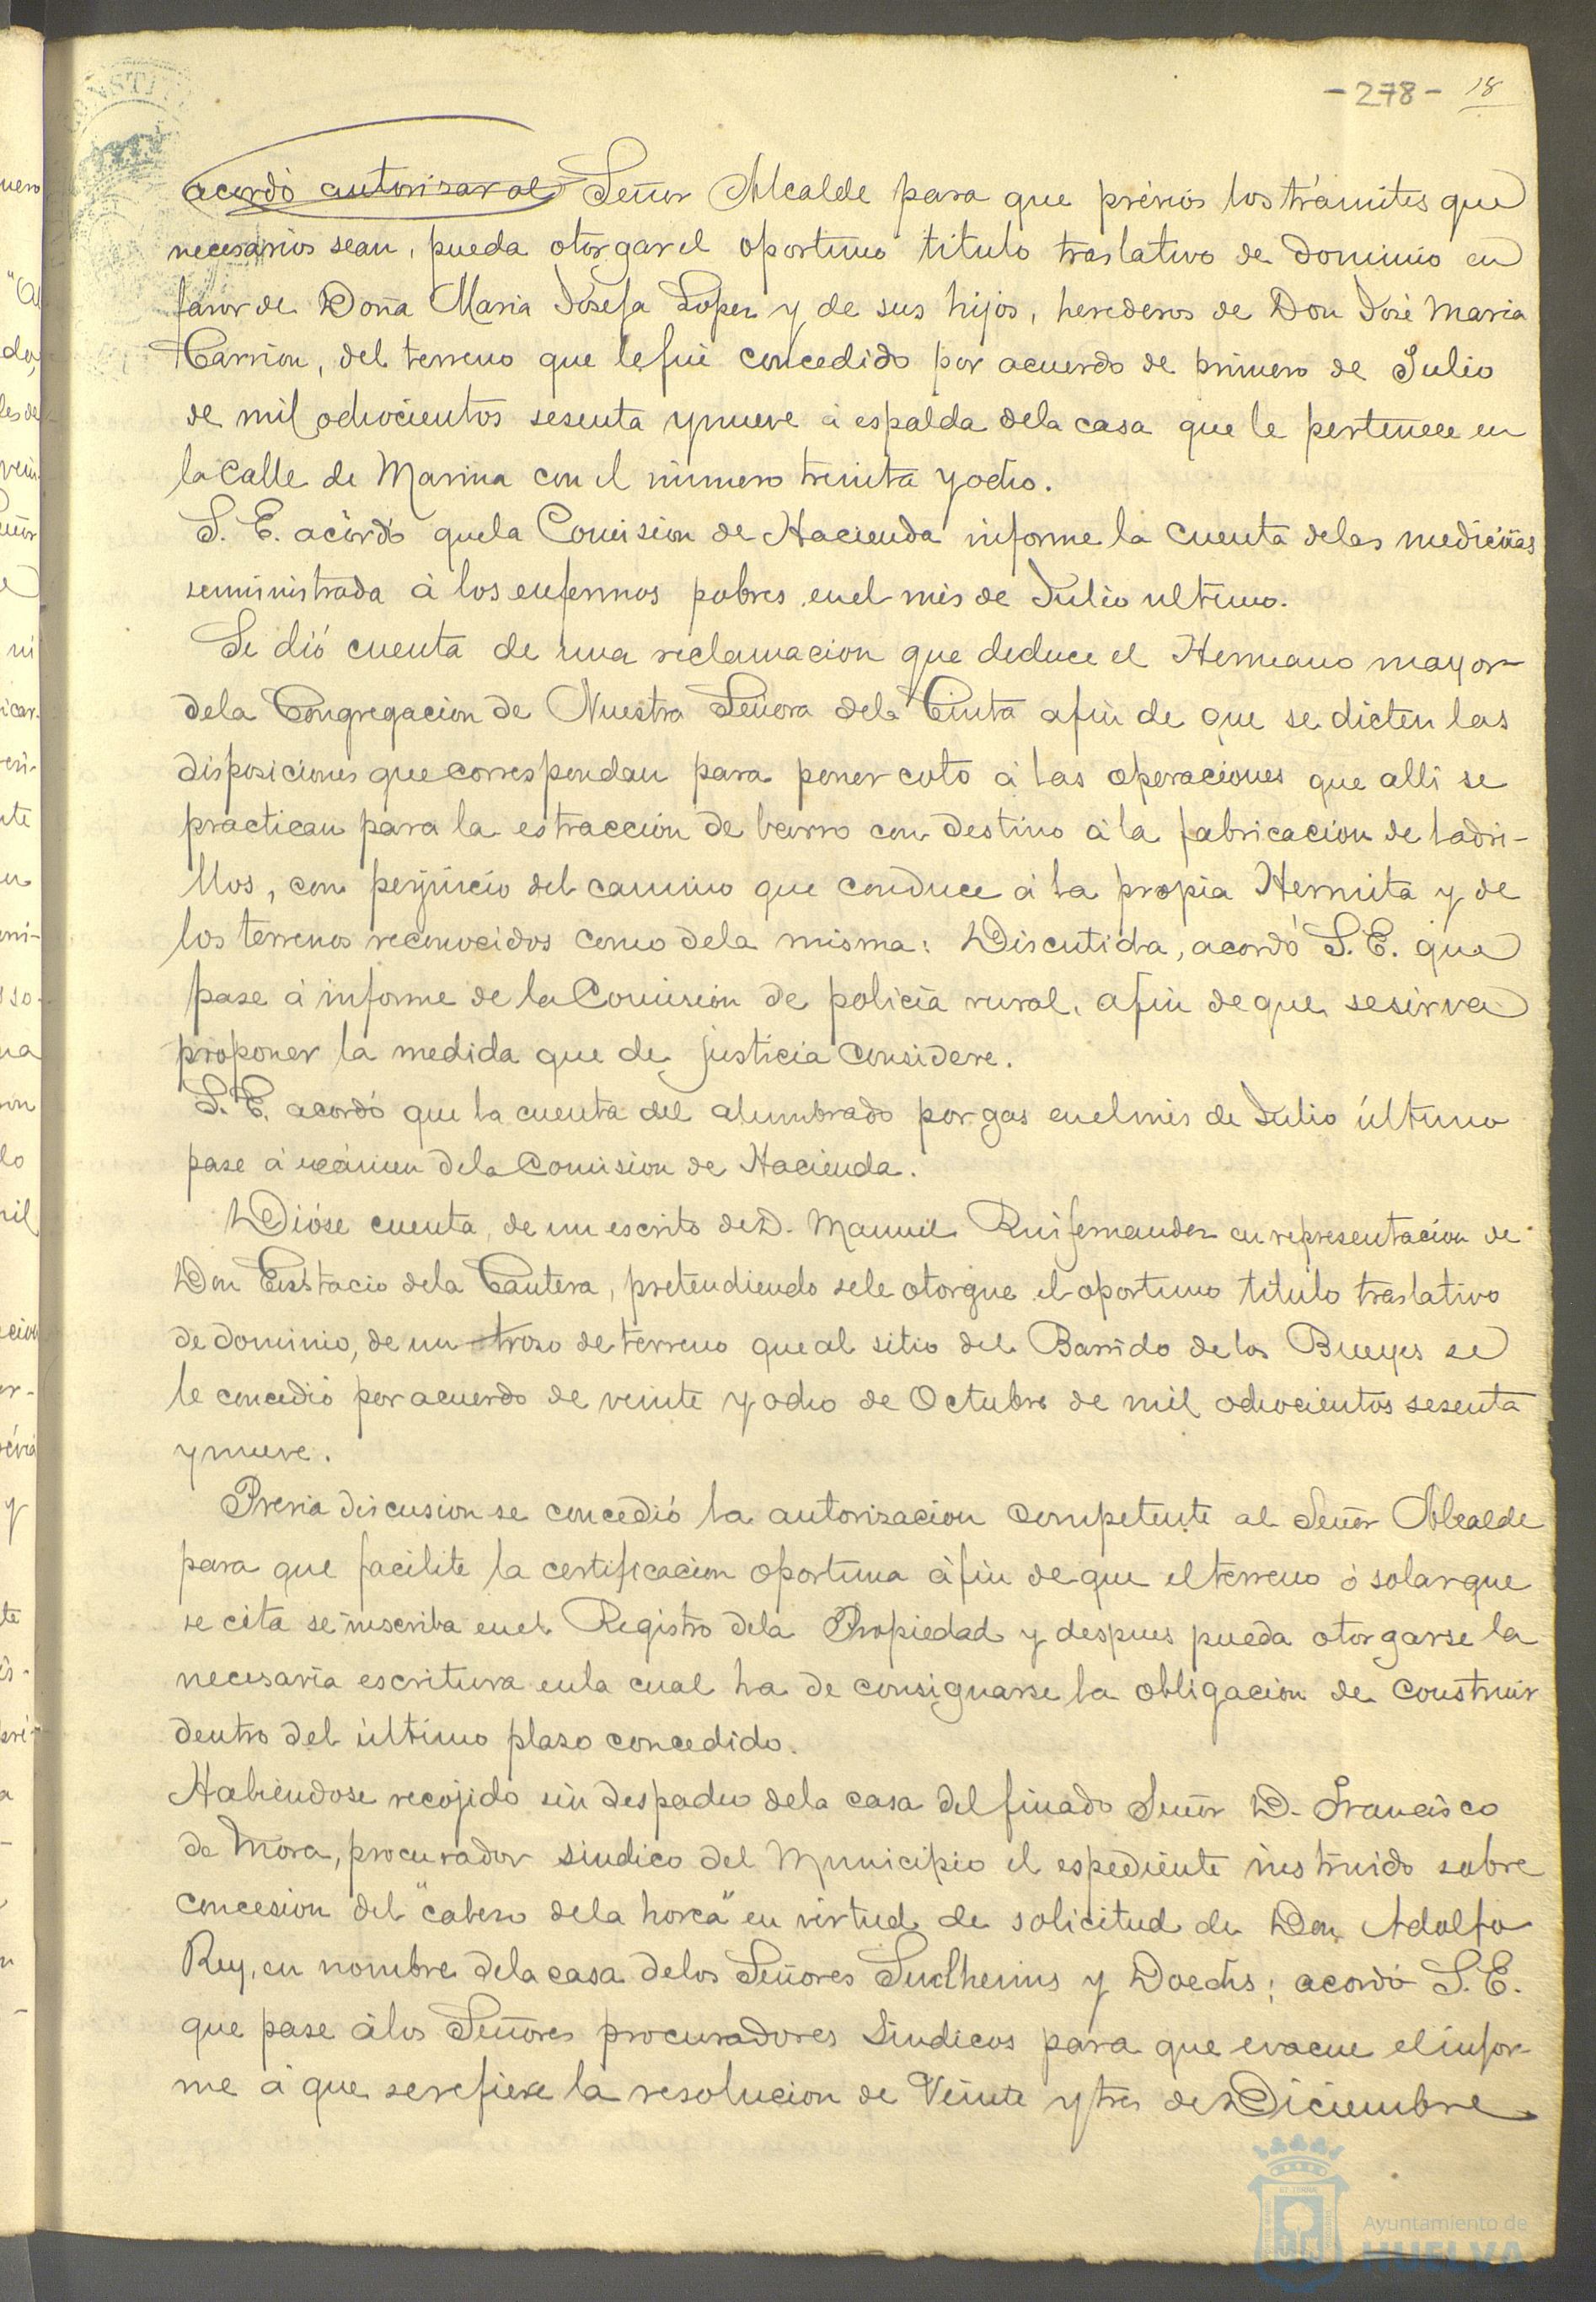 -278- 18
acordó autorizar al Señor Alcalde para que prévios los trámites que
necesarios sean, pueda otorgar el oportuno titulo traslativo de dominio en
favor de Doña Maria Josefa Lopez y de sus hijos, herederos de Don José Maria
Carrion, del terreno que le fué concedido por acuerdo de primero de Julio
de mil ochocientos sesenta y nueve á espalda dela casa que le pertenece en
la Calle de Marina con el número treinta y ocho.
S. E. acordó quela Comision de Hacienda informe la cuenta delas medicinas
seministrada á los enfermos pobres en el més de Julio ultimo.
Se dió cuenta de una reclamacion que deduce el Hermano mayor
dela Congregacion de Nuestra Señora dela Cinta afin de que se dicten las
disposiciones que correspondan para poner coto á las operaciones que alli se
practican para la estraccion de barro con destino á la fabricacion de ladri-
llos, con perjuicio del camino que conduce á la propia Hermita y de
los terrenos reconocidos como dela misma: Discutida, acordó S. E. que
pase á informe de la Comision de policía rural, afin de que se sirva
proponer la medida que de justicia considere.
S. E. acordó que la cuenta del alumbrado por gas en el més de Julio último
pase á exámen dela Comision de Hacienda.
Dióse cuenta de un escrito de D. Manuel Ruifernandez en representacion de
Don Eustacio dela Cantera, pretendiendo sele otorgue el oportuno titulo traslativo
de dominio, de un trozo de terreno que al sitio del Barrido de los Bueyes se
le concedió por acuerdo de veinte y ocho de Octubre de mil ochocientos sesenta
y nueve.
Previa discusion se concedió la autorizacion competente al Señor Alcalde
para que facilite la certificacion oportuna áfin de que el terreno ó solar que
se cita se inscriba en el Registro dela Propiedad y despues pueda otorgarse la
necesaria escritura en la cual ha de consignarse la obligacion de construir
dentro del último plazo concedido.
Habiendose recojido sin despacho dela casa del finado Señor D. Francisco
de Mora, procurador sindico del Municipio el espediente instruido sobre
concesion del "cabezo dela horca" en virtud de solicitud de Don Adolfo
Rey, en nombre dela casa delos Señores Sudhenins y Doechs; acordó S. E.
que pase álos Señores procuradores Sindicos para que evacue el infor-
me á que se refiere la resolucion de Veinte y tres de Diciembre
Ayuntamiento de
HUELVA